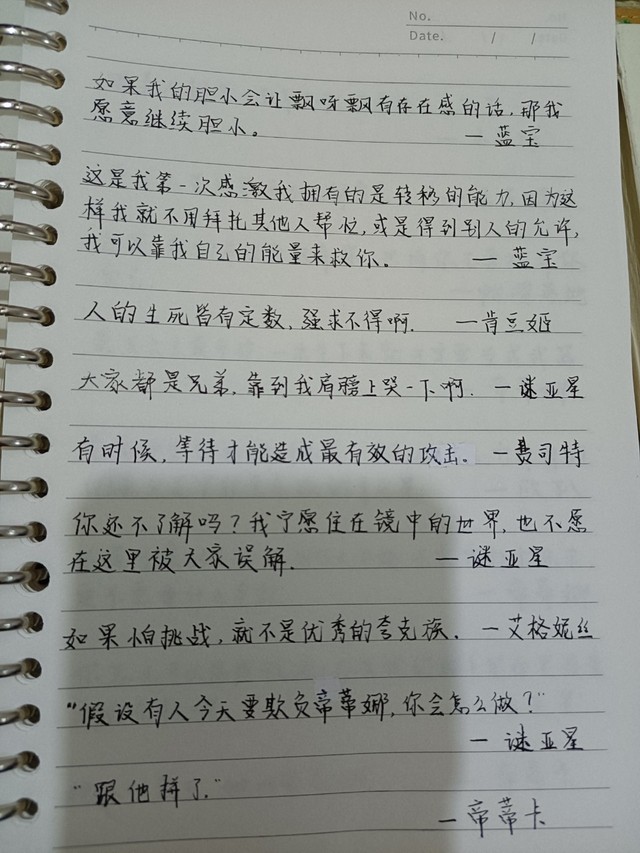 No.
Date. / /
如果我的胆小会让飘呀飘有存在感的话,那我
愿意继续胆小。 —蓝宝
这是我第一次感激我拥有的是转移的能力,因为这
样我就不用拜托其他人帮忙,或是得到别人的允许,
我可以靠我自己的能量来救你。 —蓝宝
人的生死皆有定数,强求不得啊. —肯豆姬
大家都是兄弟,靠到我肩膀上哭一下啊. —谜亚星
有时候,等待才能造成最有效的攻击。 —费司特
你还不了解吗?我宁愿住在镜中的世界,也不愿
在这里被大家误解. —谜亚星
如果怕挑战,就不是优秀的夸克族. —艾格妮丝
“假设有人今天要欺负帝蒂娜,你会怎么做?”
—谜亚星
“跟他拼了.”
—帝蒂卡